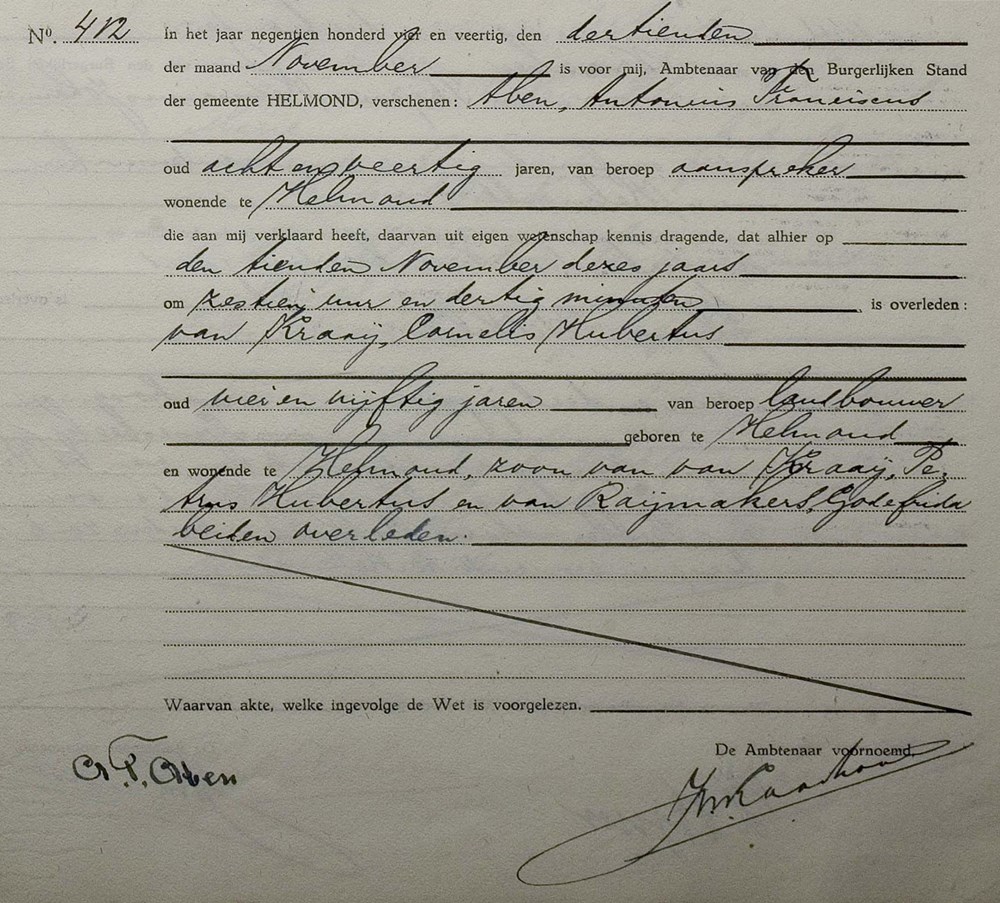 No. 412 In het jaar negentien honderd vier en veertig, den dertienden
der maand November is voor mij, Ambtenaar van den Burgerlijken Stand
der gemeente HELMOND, verschenen: Aben, Antonius Franciscus
oud acht en veertig jaren, van beroep aanspreker
wonende te Helmond
die aan mij verklaard heeft, daarvan uit eigen wetenschap kennis dragende, dat alhier op
den tienden November dezes jaars
om zestien uur en dertig minuten is overleden:
van Kraaij, Cornelis Hubertus
oud vier en vijftig jaren van beroep landbouwer
geboren te Helmond
en wonende te Helmond, zoon van van Kraaij, Pe-
trus Hubertus en van Raijmakers, Godefrida
beiden overleden.
Waarvan akte, welke ingevolge de Wet is voorgelezen.
De Ambtenaar voornoemd,
A. F. Aben